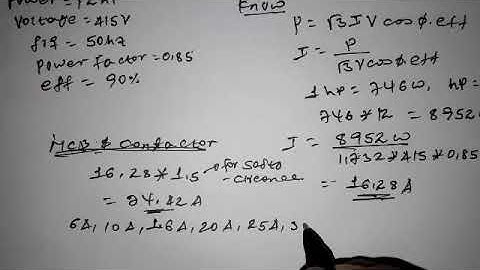 Power = 12 hp
Voltage = 415V
frq = 50hz
Power factor = 0.85
eff = 90%
Know
P = √3 I V cos φ. eff
I = P / √3 V cos φ eff
1 hp = 746 w, hp =
746 * 12 = 8952
MCB & Contactor
16,28 * 1,5
= 24,42 A
6A, 10A, 16A, 20A, 25A, 3
I = 8952 w / 1,732 * 415 * 0,85
= 16,28 A